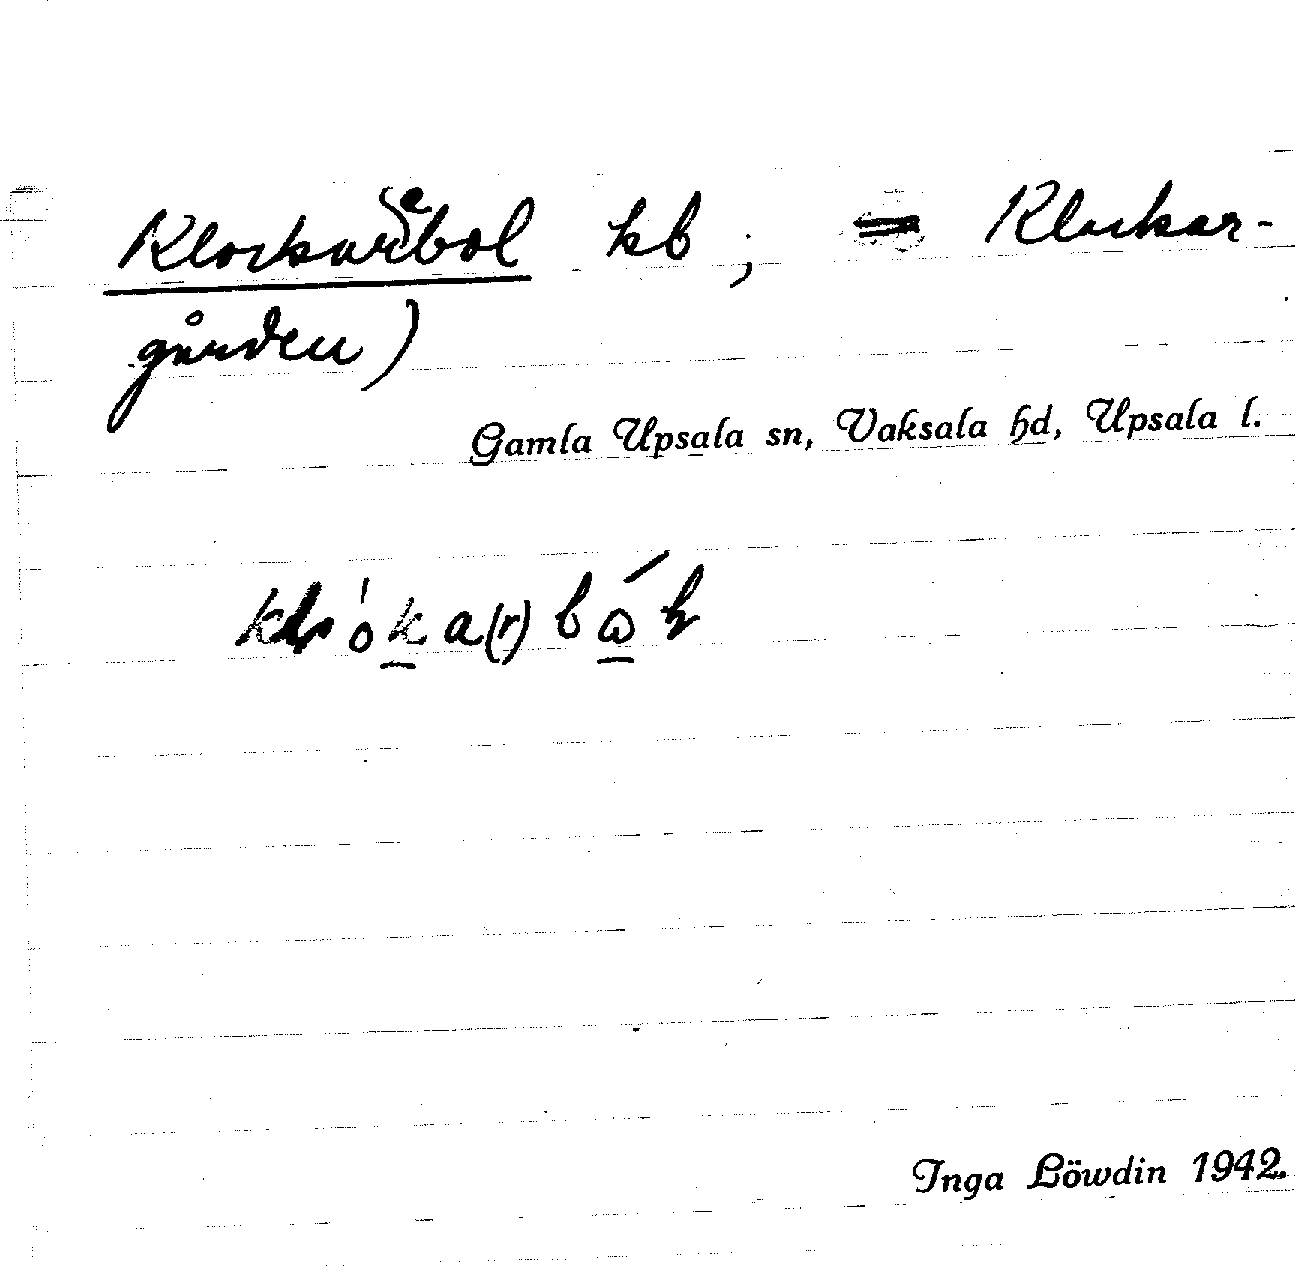 Klockarebol kb; = Klockar-
gården)
Gamla Upsala sn, Vaksala hd, Upsala l.
Inga Löwdin 1942.